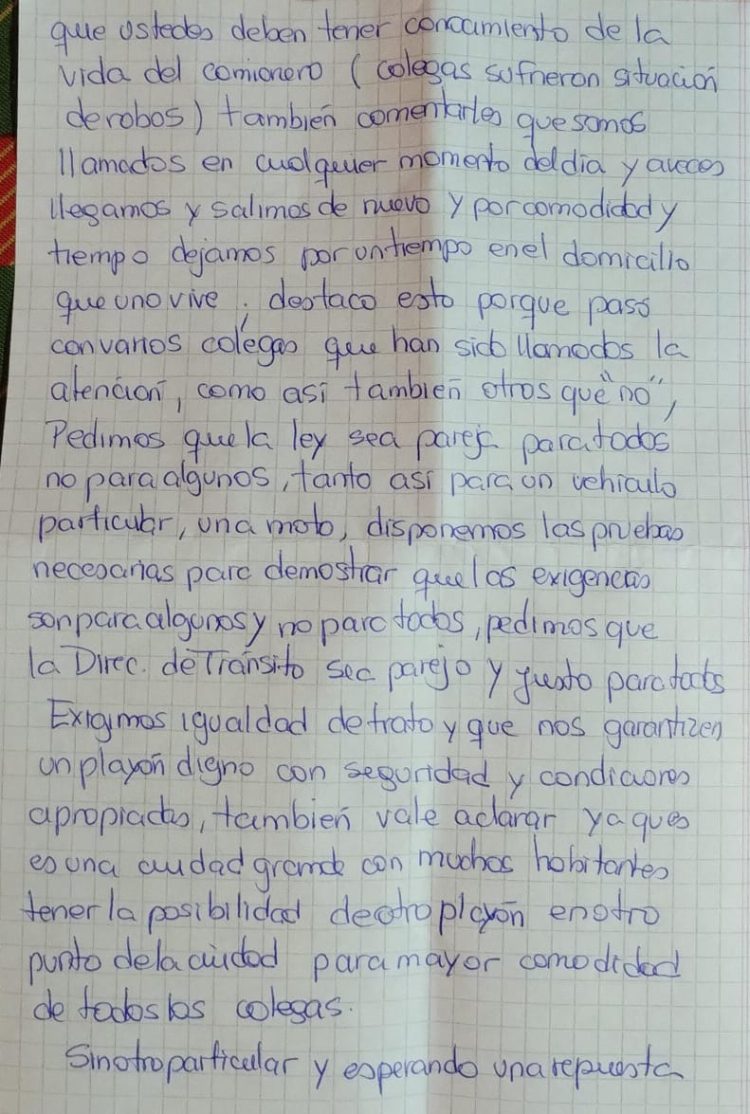 que ustedes deben tener concamiento de la
vida del comionero (colegas sufrieron situación
de robos) también comentarles que somos
llamados en cualquier momento del dia y aveces
llegamos y salimos de nuevo y por comodidad y
tiempo dejamos por un tiempo en el domicilio
que uno vive; destaco esto porque paso
con varios colegas que han sido llamados la
atención, como así también otros que "no",
Pedimos que la ley sea pareja para todos
no para algunos, tanto así para un vehiculo
particular, una moto, disponemos las pruebas
necesarias para demostrar que las exigencias
son para algunos y no para todos, pedimos que
la Direc. de Tránsito sea parejo y justo para todos
Exigimos igualdad de trato y que nos garantizen
un playón digno con seguridad y condiciones
apropiadas, también vale aclarar ya ques
es una ciudad grande con muchos habitantes
tener la posibilidad de otro playón en otro
punto de la ciudad para mayor comodidad
de todos los colegas.
Sin otro particular y esperando una repuesta